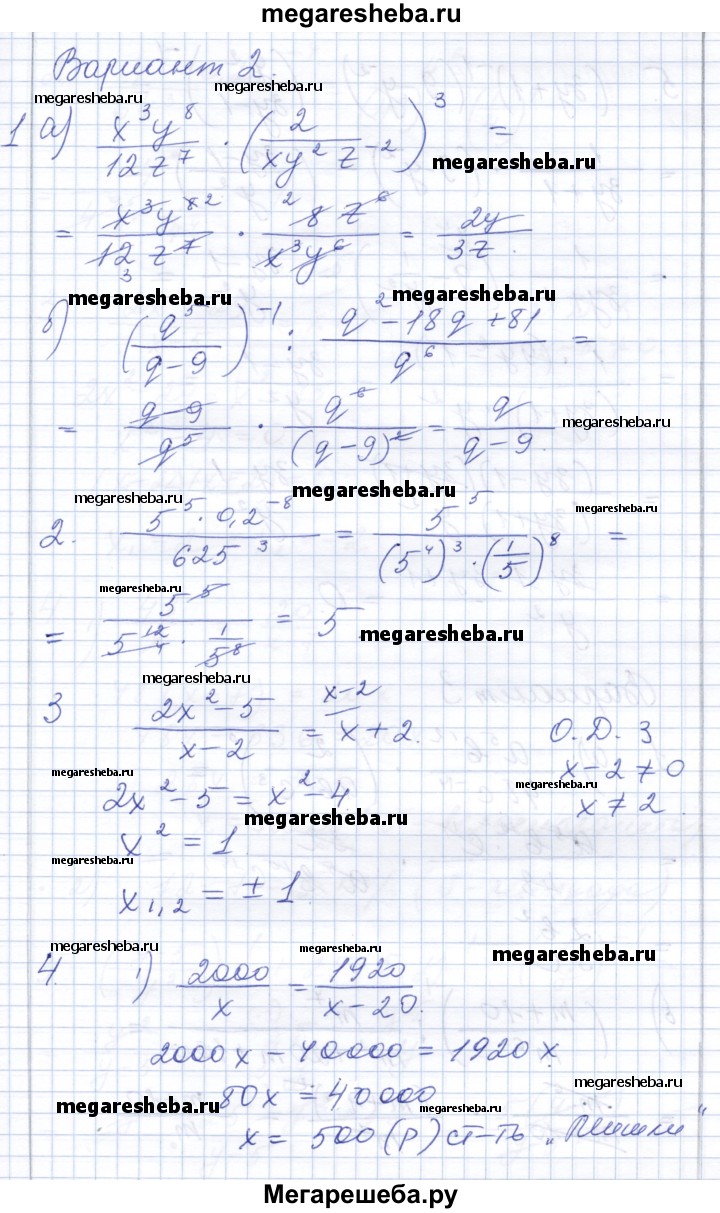 megaresheba.ru
Вариант 2.
megaresheba.ru megaresheba.ru
1 а) x³y⁸/12z⁷ · (2/xy²z⁻²)³ =
megaresheba.ru
= x³y⁸ ²/12z⁷ ₃ · ² 8z⁶/x³y⁶ = 2y/3z.
megaresheba.ru megaresheba.ru
б) (q⁵/q-9)⁻¹ : q²-18q+81/q⁶ =
= q-9/q⁵ · q⁶/(q-9)² = q/q-9.
megaresheba.ru
megaresheba.ru megaresheba.ru megaresheba.ru
2. 5⁵·0,2⁻⁸/625³ = 5⁵/(5⁴)³·(1/5)⁸ =
megaresheba.ru
= 5⁵/5¹² ₄·1/5⁸ = 5
megaresheba.ru
megaresheba.ru
3 2x²-5/x-2 = x-2 x+2. О.Д.З
megaresheba.ru x-2≠0
megaresheba.ru
2x²-5=x²-4 x≠2
megaresheba.ru
x²=1
megaresheba.ru
x₁,₂=±1
megaresheba.ru megaresheba.ru megaresheba.ru
4. 1) 2000/x = 1920/x-20.
2000x-40000=1920x
megaresheba.ru
80x=40000
megaresheba.ru megaresheba.ru
x=500(р) ст-ть
megaresheba.ru
Мегарешеба.ру